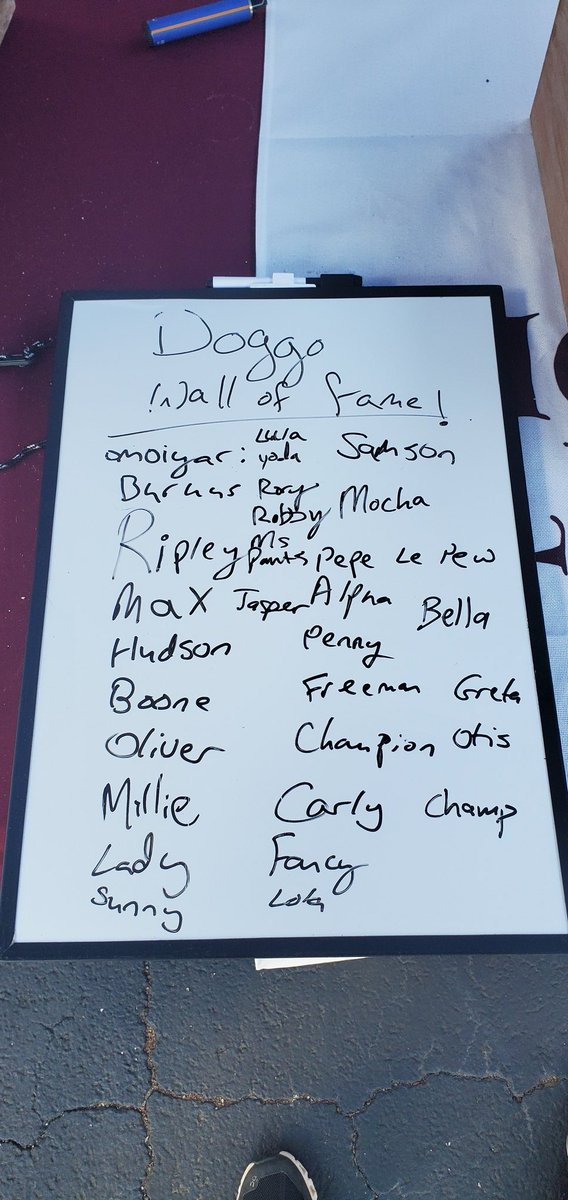 Doggo
Wall of fame!
omoiyar: Lula Samson
yoda
Burkus Rory
Robby Mocha
Ripley Ms Pants Pepe Le Pew
Max Jasper Alpha Bella
Hudson Penny
Boone Freeman Greta
Oliver Champion Otis
Millie Carly Champ
Lady Fancy
Sunny Lola